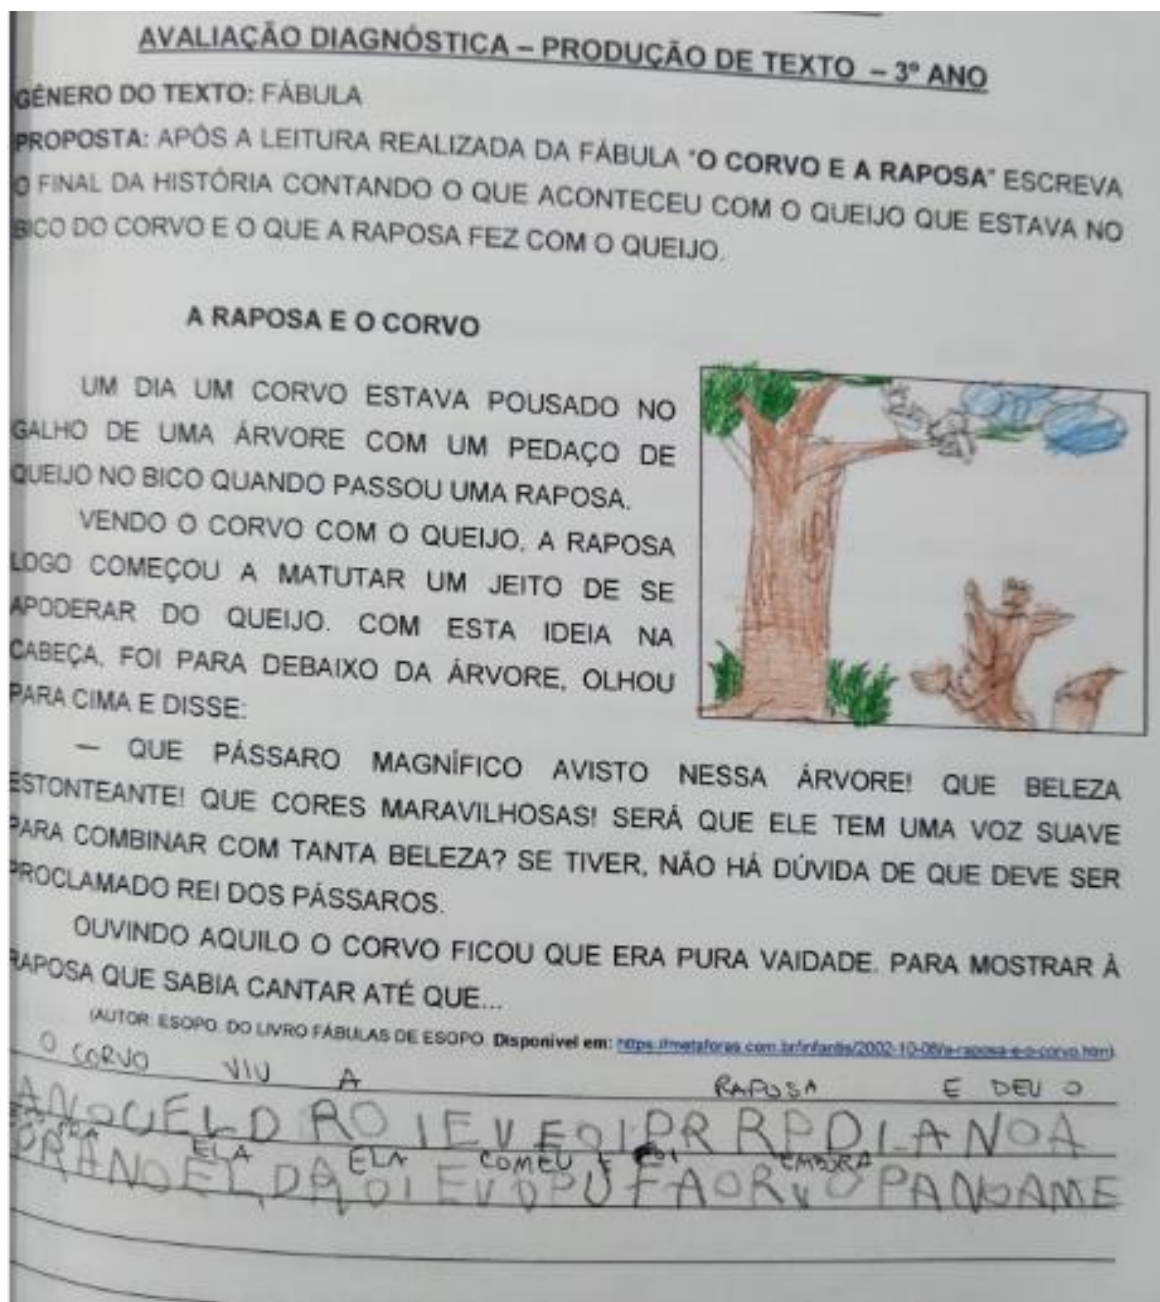 AVALIAÇÃO DIAGNÓSTICA – PRODUÇÃO DE TEXTO – 3º ANO
GÊNERO DO TEXTO: FÁBULA
PROPOSTA: APÓS A LEITURA REALIZADA DA FÁBULA "O CORVO E A RAPOSA" ESCREVA
O FINAL DA HISTÓRIA CONTANDO O QUE ACONTECEU COM O QUEIJO QUE ESTAVA NO
BICO DO CORVO E O QUE A RAPOSA FEZ COM O QUEIJO.
A RAPOSA E O CORVO
UM DIA UM CORVO ESTAVA POUSADO NO
GALHO DE UMA ÁRVORE COM UM PEDAÇO DE
QUEIJO NO BICO QUANDO PASSOU UMA RAPOSA.
VENDO O CORVO COM O QUEIJO, A RAPOSA
LOGO COMEÇOU A MATUTAR UM JEITO DE SE
APODERAR DO QUEIJO. COM ESTA IDEIA NA
CABEÇA, FOI PARA DEBAIXO DA ÁRVORE, OLHOU
PARA CIMA E DISSE:
— QUE PÁSSARO MAGNÍFICO AVISTO NESSA ÁRVORE! QUE BELEZA
ESTONTEANTE! QUE CORES MARAVILHOSAS! SERÁ QUE ELE TEM UMA VOZ SUAVE
PARA COMBINAR COM TANTA BELEZA? SE TIVER, NÃO HÁ DÚVIDA DE QUE DEVE SER
PROCLAMADO REI DOS PÁSSAROS.
OUVINDO AQUILO O CORVO FICOU QUE ERA PURA VAIDADE. PARA MOSTRAR À
RAPOSA QUE SABIA CANTAR ATÉ QUE...
(AUTOR: ESOPO. DO LIVRO FÁBULAS DE ESOPO. Disponível em: https://metaforas.com.br/infantis/2002-10-06/a-raposa-e-o-corvo.htm)
O CORVO VIU A RAPOSA E DEU O
ELA ELA COMEU E FOI EMBORA